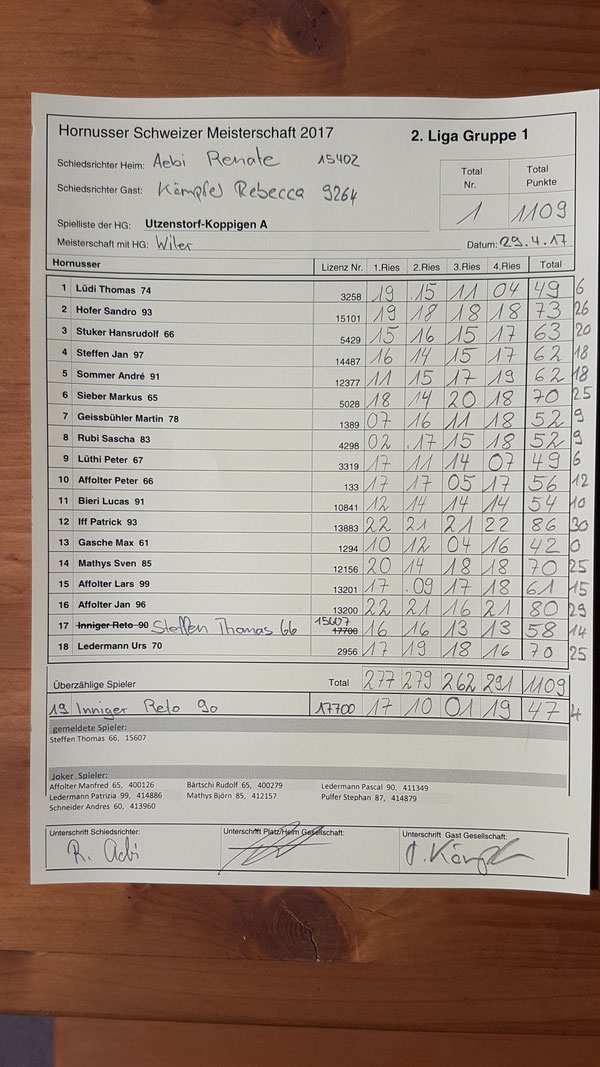 Hornusser Schweizer Meisterschaft 2017 2. Liga Gruppe 1
Schiedsrichter Heim: Aebi Renate 15402
Total Nr. Total Punkte
Schiedsrichter Gast: Kämpfer Rebecca 9264
1 1109
Spielliste der HG: Utzenstorf-Koppigen A
Meisterschaft mit HG: Wiler Datum: 29.4.17
Hornusser Lizenz Nr. 1.Ries 2.Ries 3.Ries 4.Ries Total
1 Lüdi Thomas 74 3258 19 15 11 04 49 6
2 Hofer Sandro 93 15101 19 18 18 18 73 26
3 Stuker Hansrudolf 66 5429 15 16 15 17 63 20
4 Steffen Jan 97 14487 16 14 15 17 62 18
5 Sommer André 91 12377 11 15 17 19 62 18
6 Sieber Markus 65 5028 18 14 20 18 70 25
7 Geissbühler Martin 78 1389 07 16 11 18 52 9
8 Rubi Sascha 83 4298 02 .17 15 18 52 9
9 Lüthi Peter 67 3319 17 11 14 07 49 6
10 Affolter Peter 66 133 17 17 05 17 56 12
11 Bieri Lucas 91 10841 12 14 14 14 54 10
12 Iff Patrick 93 13883 22 21 21 22 86 30
13 Gasche Max 61 1294 10 12 04 16 42 0
14 Mathys Sven 85 12156 20 14 18 18 70 25
15 Affolter Lars 99 13201 17 .09 17 18 61 15
16 Affolter Jan 96 13200 22 21 16 21 80 29
17 Inniger Reto 90 Steffen Thomas 66 15607 17700 16 16 13 13 58 14
18 Ledermann Urs 70 2956 17 19 18 16 70 25
Überzählige Spieler Total 277 279 262 291 1109
19 Inniger Reto 90 17700 17 10 01 19 47 4
gemeldete Spieler:
Steffen Thomas 66, 15607
Joker Spieler:
Affolter Manfred 65, 400126 Bärtschi Rudolf 65, 400279 Ledermann Pascal 90, 411349
Ledermann Patrizia 99, 414886 Mathys Björn 85, 412157 Pulfer Stephan 87, 414879
Schneider Andres 60, 413960
Unterschrift Schiedsrichter: Unterschrift Platz/Heim Gesellschaft: Unterschrift Gast Gesellschaft:
R. Aebi